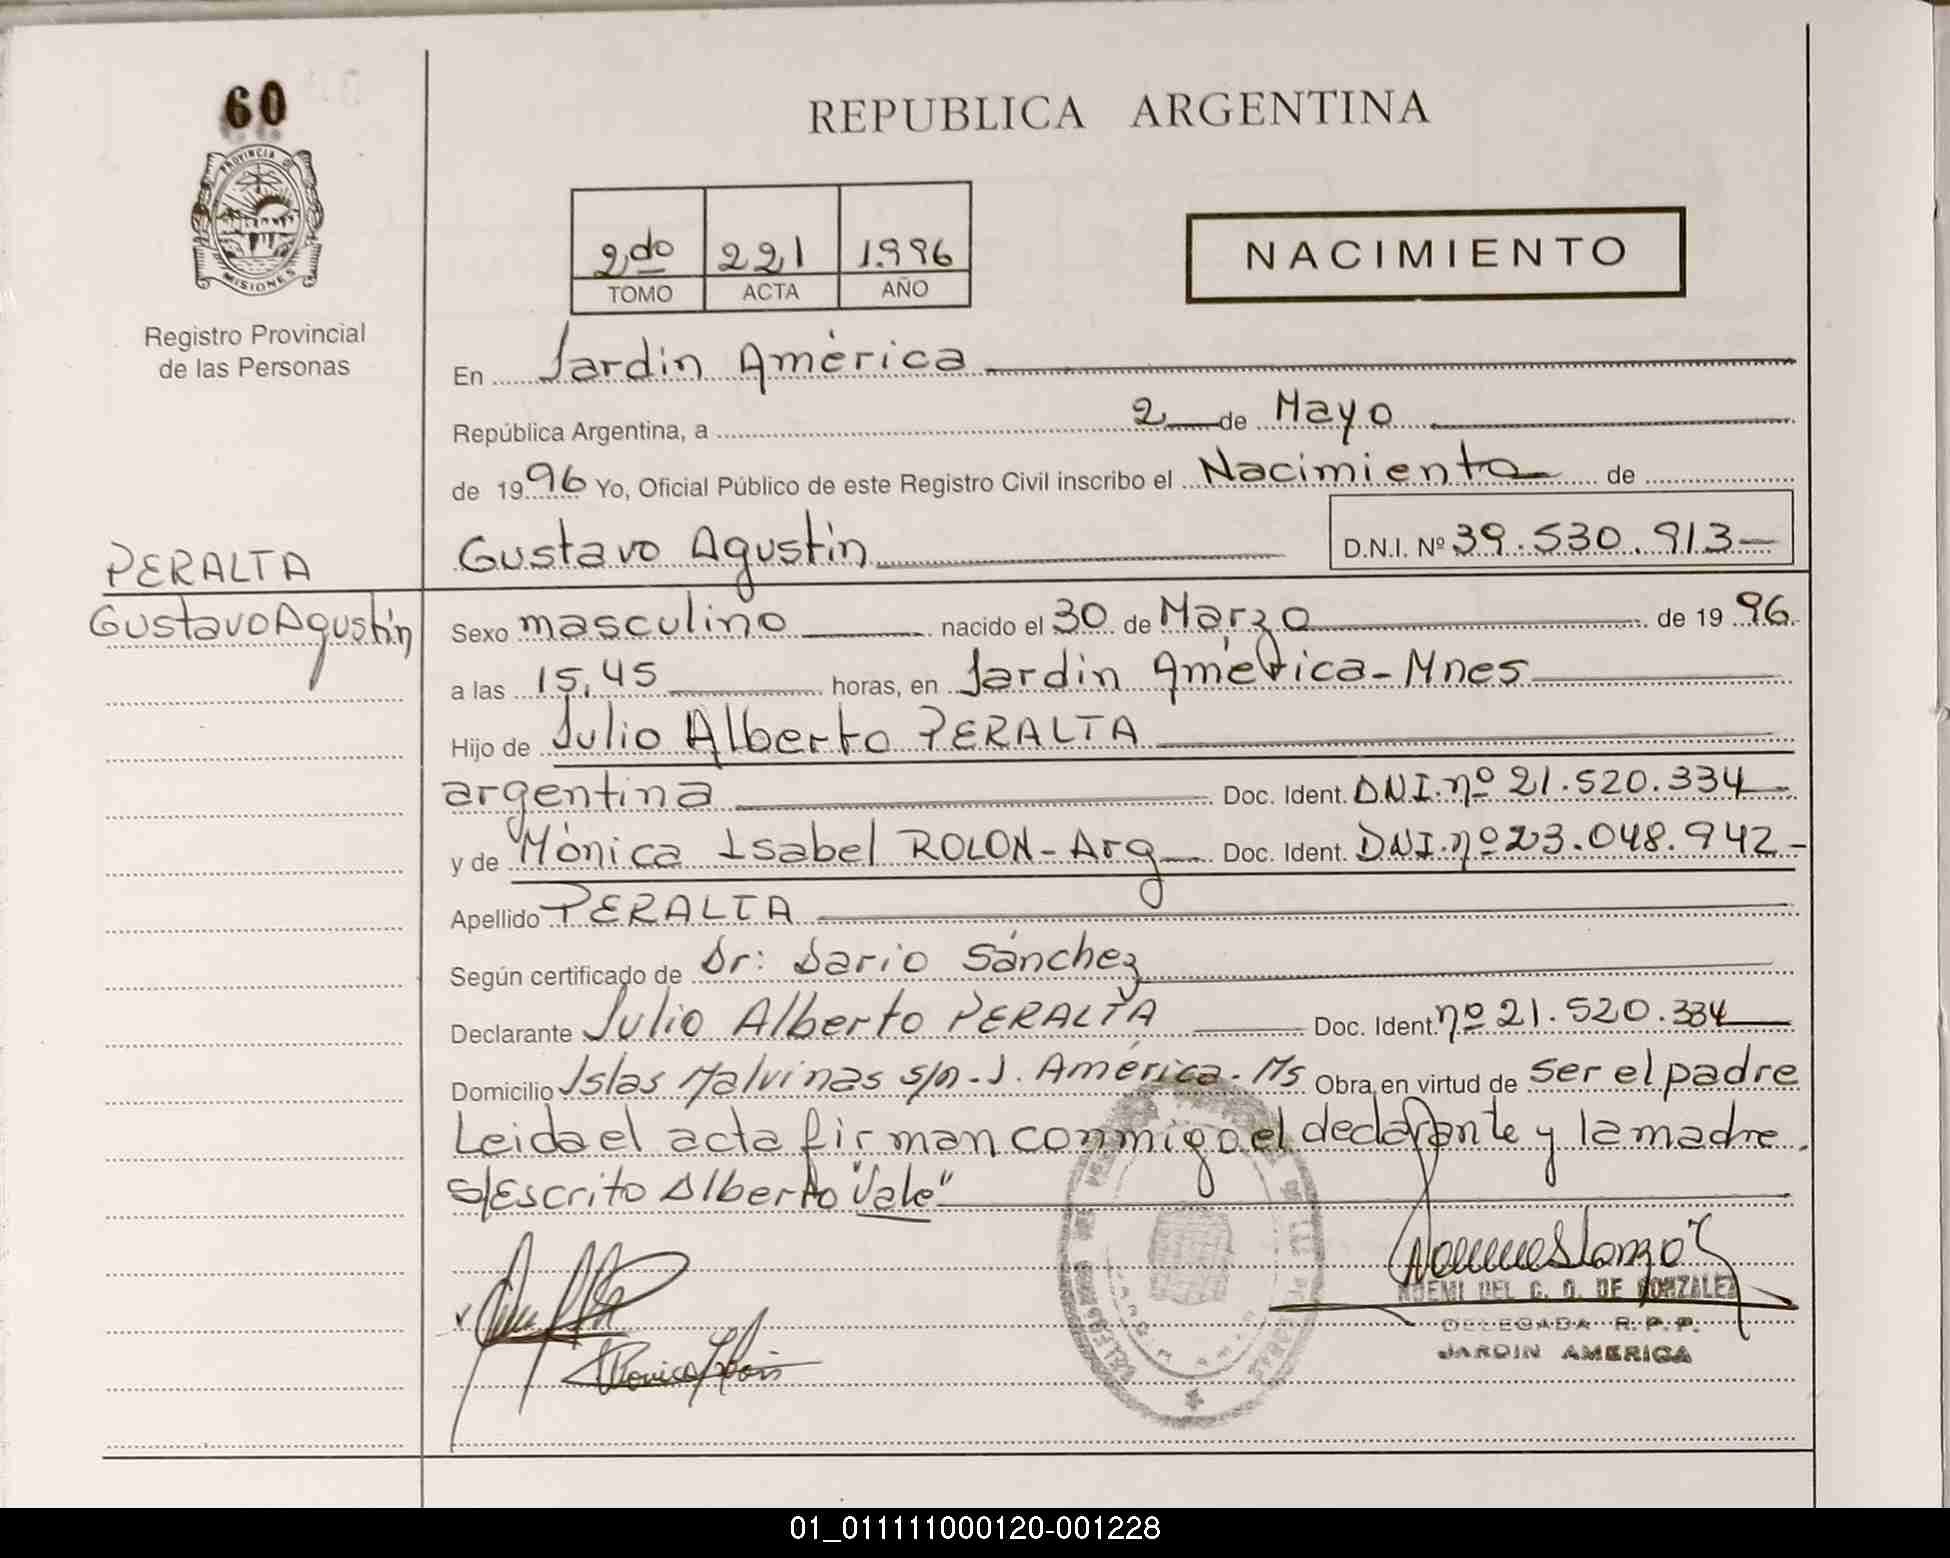 60
PROVINCIA DE
MISIONES
Registro Provincial
de las Personas
REPUBLICA ARGENTINA
2do 221 1.996
TOMO ACTA AÑO
NACIMIENTO
En Jardin América
República Argentina, a 2 de Mayo
de 1996 Yo, Oficial Público de este Registro Civil inscribo el Nacimiento de
Gustavo Agustín D.N.I. Nº 39.530.913
PERALTA
Gustavo Agustín
Sexo masculino nacido el 30 de Marzo de 1996.
a las 15,45 horas, en Jardin América - Mnes
Hijo de Julio Alberto PERALTA
argentina Doc. Ident. DNI. nº 21.520.334
y de Mónica Isabel ROLON - Arg Doc. Ident. DNI. nº 23.048.942 -
Apellido PERALTA
Según certificado de Dr: Dario Sánchez
Declarante Julio Alberto PERALTA Doc. Ident. nº 21.520.334
Domicilio Islas Malvinas s/n - J. América - Ms Obra en virtud de ser el padre
Leida el acta firman conmigo el declarante y la madre.
s/Escrito Alberto "Vale"
NOEMI DEL C. O. DE GONZALEZ
DELEGADA R. P. P.
JARDIN AMERICA
01_011111000120-001228